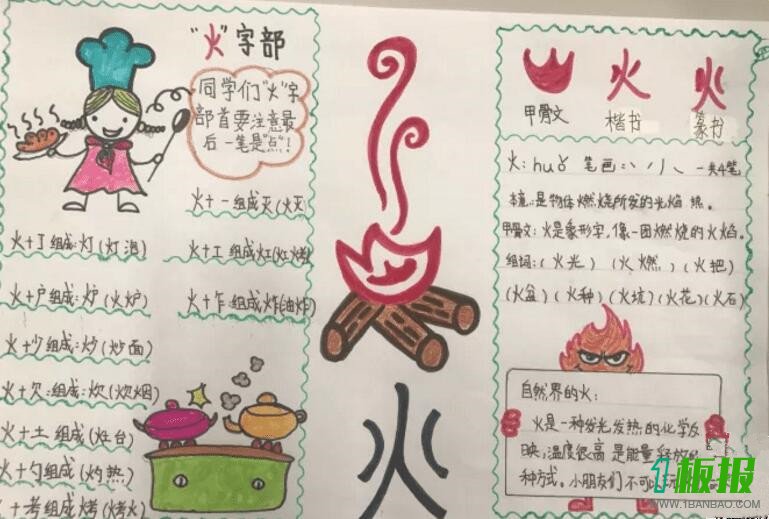 “火”字部
同学们“火”字
部首要注意最
后一笔是“点”！
火+一组成灭(火灭)
火+丁组成:灯(灯泡)
火+工组成灶(灶烤)
火+户组成:炉(火炉)
火+乍组成炸(油炸)
火+少组成:炒(炒面)
火+欠:组成:炊(炊烟)
火+土组成(灶台)
火+勺组成(灼热)
火+考组成烤(烤火)
火
火 火
甲骨文 楷书 篆书
火:huǒ 笔画:丶丿人一共4笔
本意:是物体燃烧所发的光焰 热。
甲骨文:火是象形字,像一团燃烧的火焰。
组词:(火光) (火燃) (火把)
(火盆)(火种)(火坑)(火花)(火石)
自然界的火:
火是一种发光发热的化学反
映,温度很高是能量释放的
种方式。小朋友们不可以玩
1板报
WWW.1BANBAO.COM